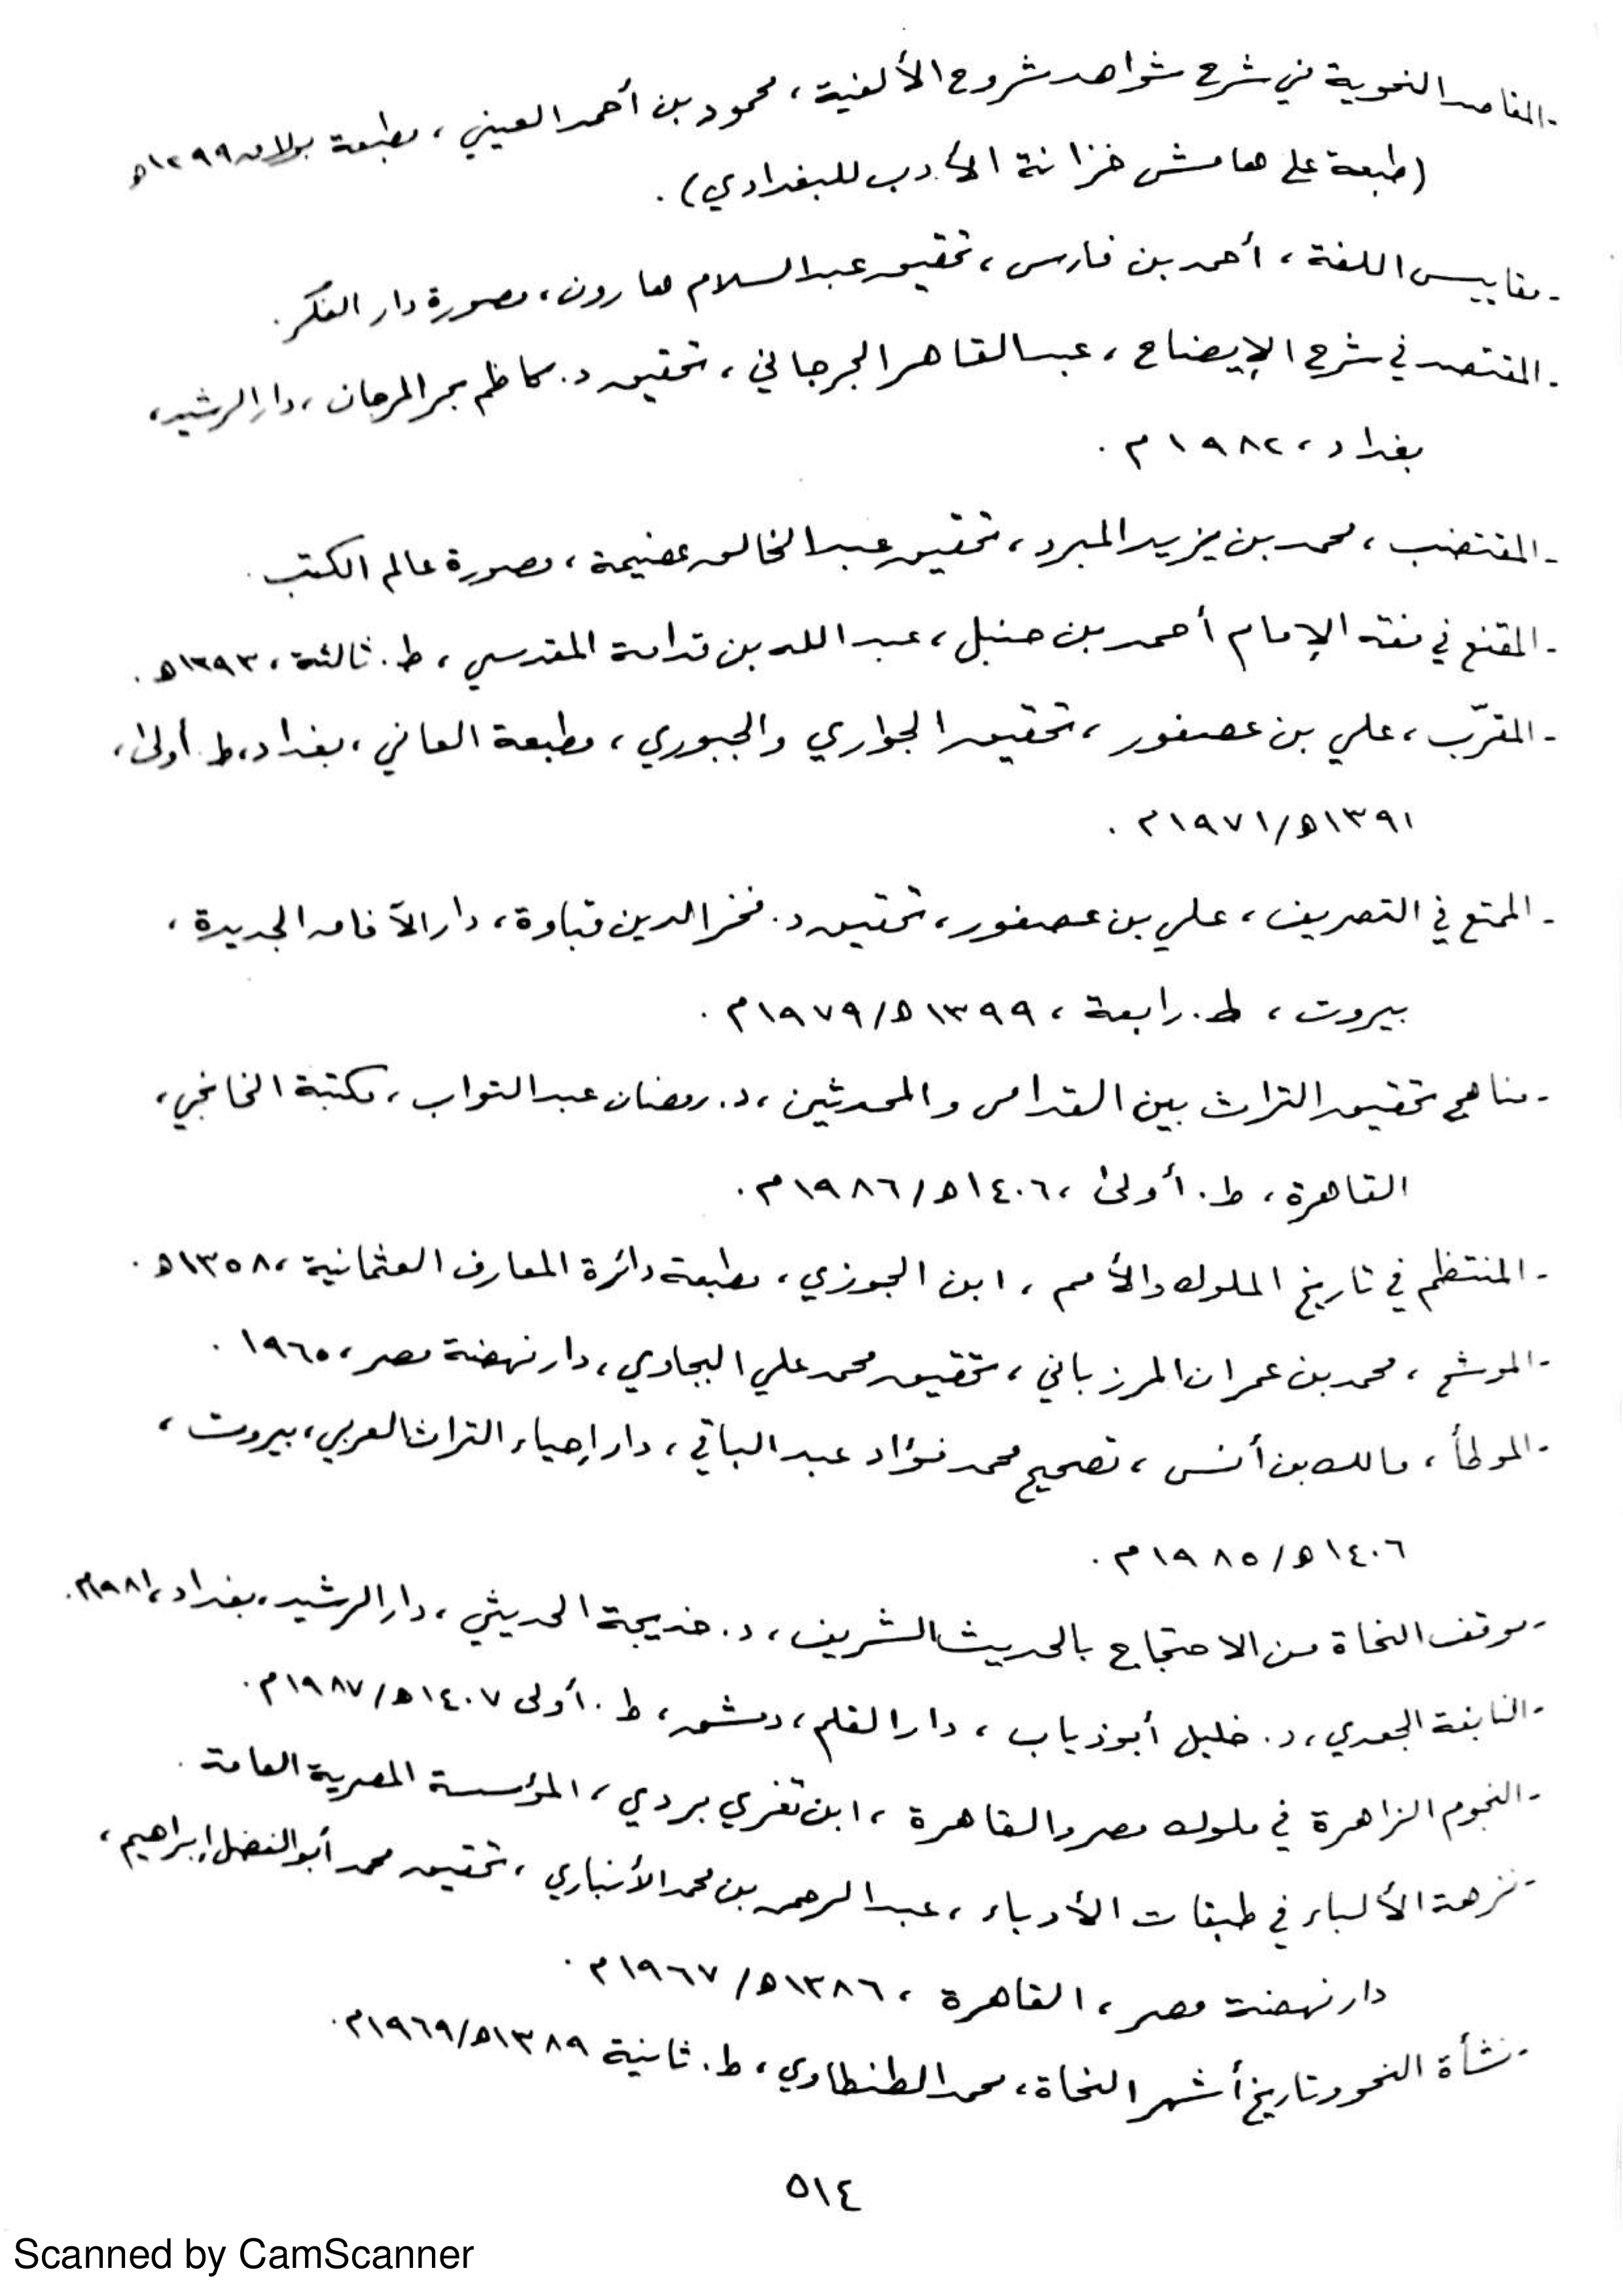 - المقاصد النحوية في شرح شواهد شروح الألفية، محمود بن أحمد العيني، مطبعة بولاق ١٢٩٩هـ
(طبعة على هامش خزانة الأدب للبغدادي).
- مقاييس اللغة، أحمد بن فارس، تحقيق عبد السلام هارون، مصورة دار الفكر.
- المقتصد في شرح الإيضاح، عبد القاهر الجرجاني، تحقيق د. كاظم بحر المرجان، دار الرشيد،
بغداد، ١٩٨٢م.
- المقتضب، محمد بن يزيد المبرد، تحقيق عبد الخالق عضيمة، مصورة عالم الكتب.
- المقنع في فقه الإمام أحمد بن حنبل، عبد الله بن قدامة المقدسي، ط. ثالثة، ١٣٩٣هـ.
- المقرّب، علي بن عصفور، تحقيق الجواري والجبوري، مطبعة العاني، بغداد، ط. أولى،
١٣٩١هـ/١٩٧١م.
- الممتع في التصريف، علي بن عصفور، تحقيق د. فخر الدين قباوة، دار الآفاق الجديدة،
بيروت، ط. رابعة، ١٣٩٩هـ/١٩٧٩م.
- مناهج تحقيق التراث بين القدامى والمحدثين، د. رمضان عبد التواب، مكتبة الخانجي،
القاهرة، ط. أولى، ١٤٠٦هـ/١٩٨٦م.
- المنتظم في تاريخ الملوك والأمم، ابن الجوزي، مطبعة دائرة المعارف العثمانية، ١٣٥٨هـ.
- الموشح، محمد بن عمران المرزباني، تحقيق محمد علي البجاوي، دار نهضة مصر، ١٩٦٥.
- الموطأ، مالك بن أنس، تصحيح محمد فؤاد عبد الباقي، دار إحياء التراث العربي، بيروت،
١٤٠٦هـ/١٩٨٥م.
- موقف النحاة من الاحتجاج بالحديث الشريف، د. خديجة الحديثي، دار الرشيد، بغداد، ١٩٨١م.
- النابغة الجعدي، د. خليل أبو ذياب، دار القلم، دمشق، ط. أولى ١٤٠٧هـ/١٩٨٧م.
- النجوم الزاهرة في ملوك مصر والقاهرة، ابن تغري بردي، المؤسسة المصرية العامة.
- نزهة الألباء في طبقات الأدباء، عبد الرحمن بن محمد الأنباري، تحقيق محمد أبو الفضل إبراهيم،
دار نهضة مصر، القاهرة، ١٣٨٦هـ/١٩٦٧م.
- نشأة النحو وتاريخ أشهر النحاة، محمد الطنطاوي، ط. ثانية ١٣٨٩هـ/١٩٦٩م.
٥١٤
Scanned by CamScanner